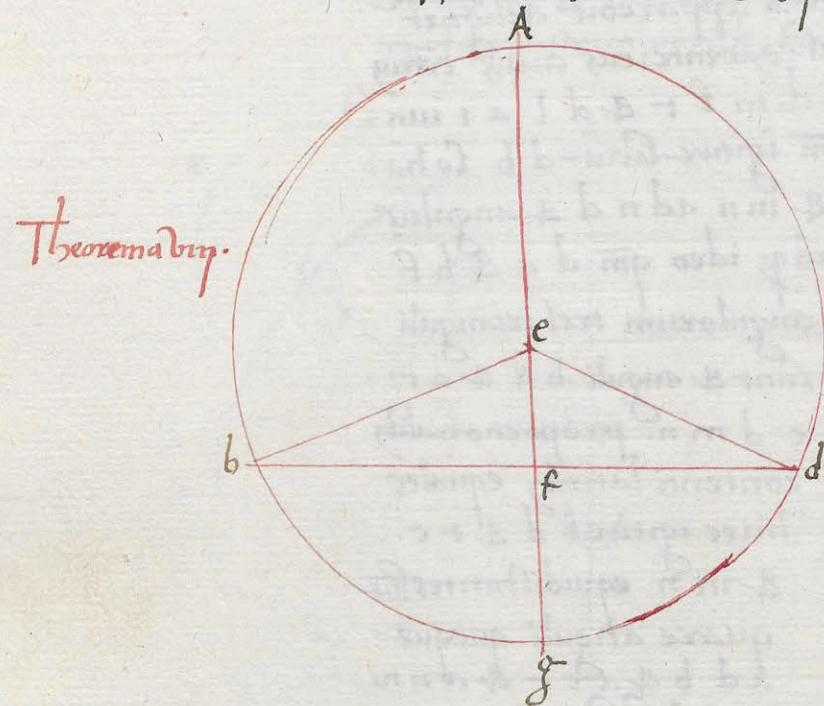 A
Theorema viii.
e
b
f
d
g